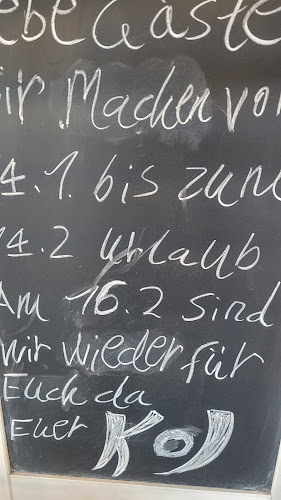 ebe Gäste
ir Machen vo
4.1. bis zum
14.2 Urlaub
Am 16.2 sind
wir wieder für
Euch da
Euer Koj